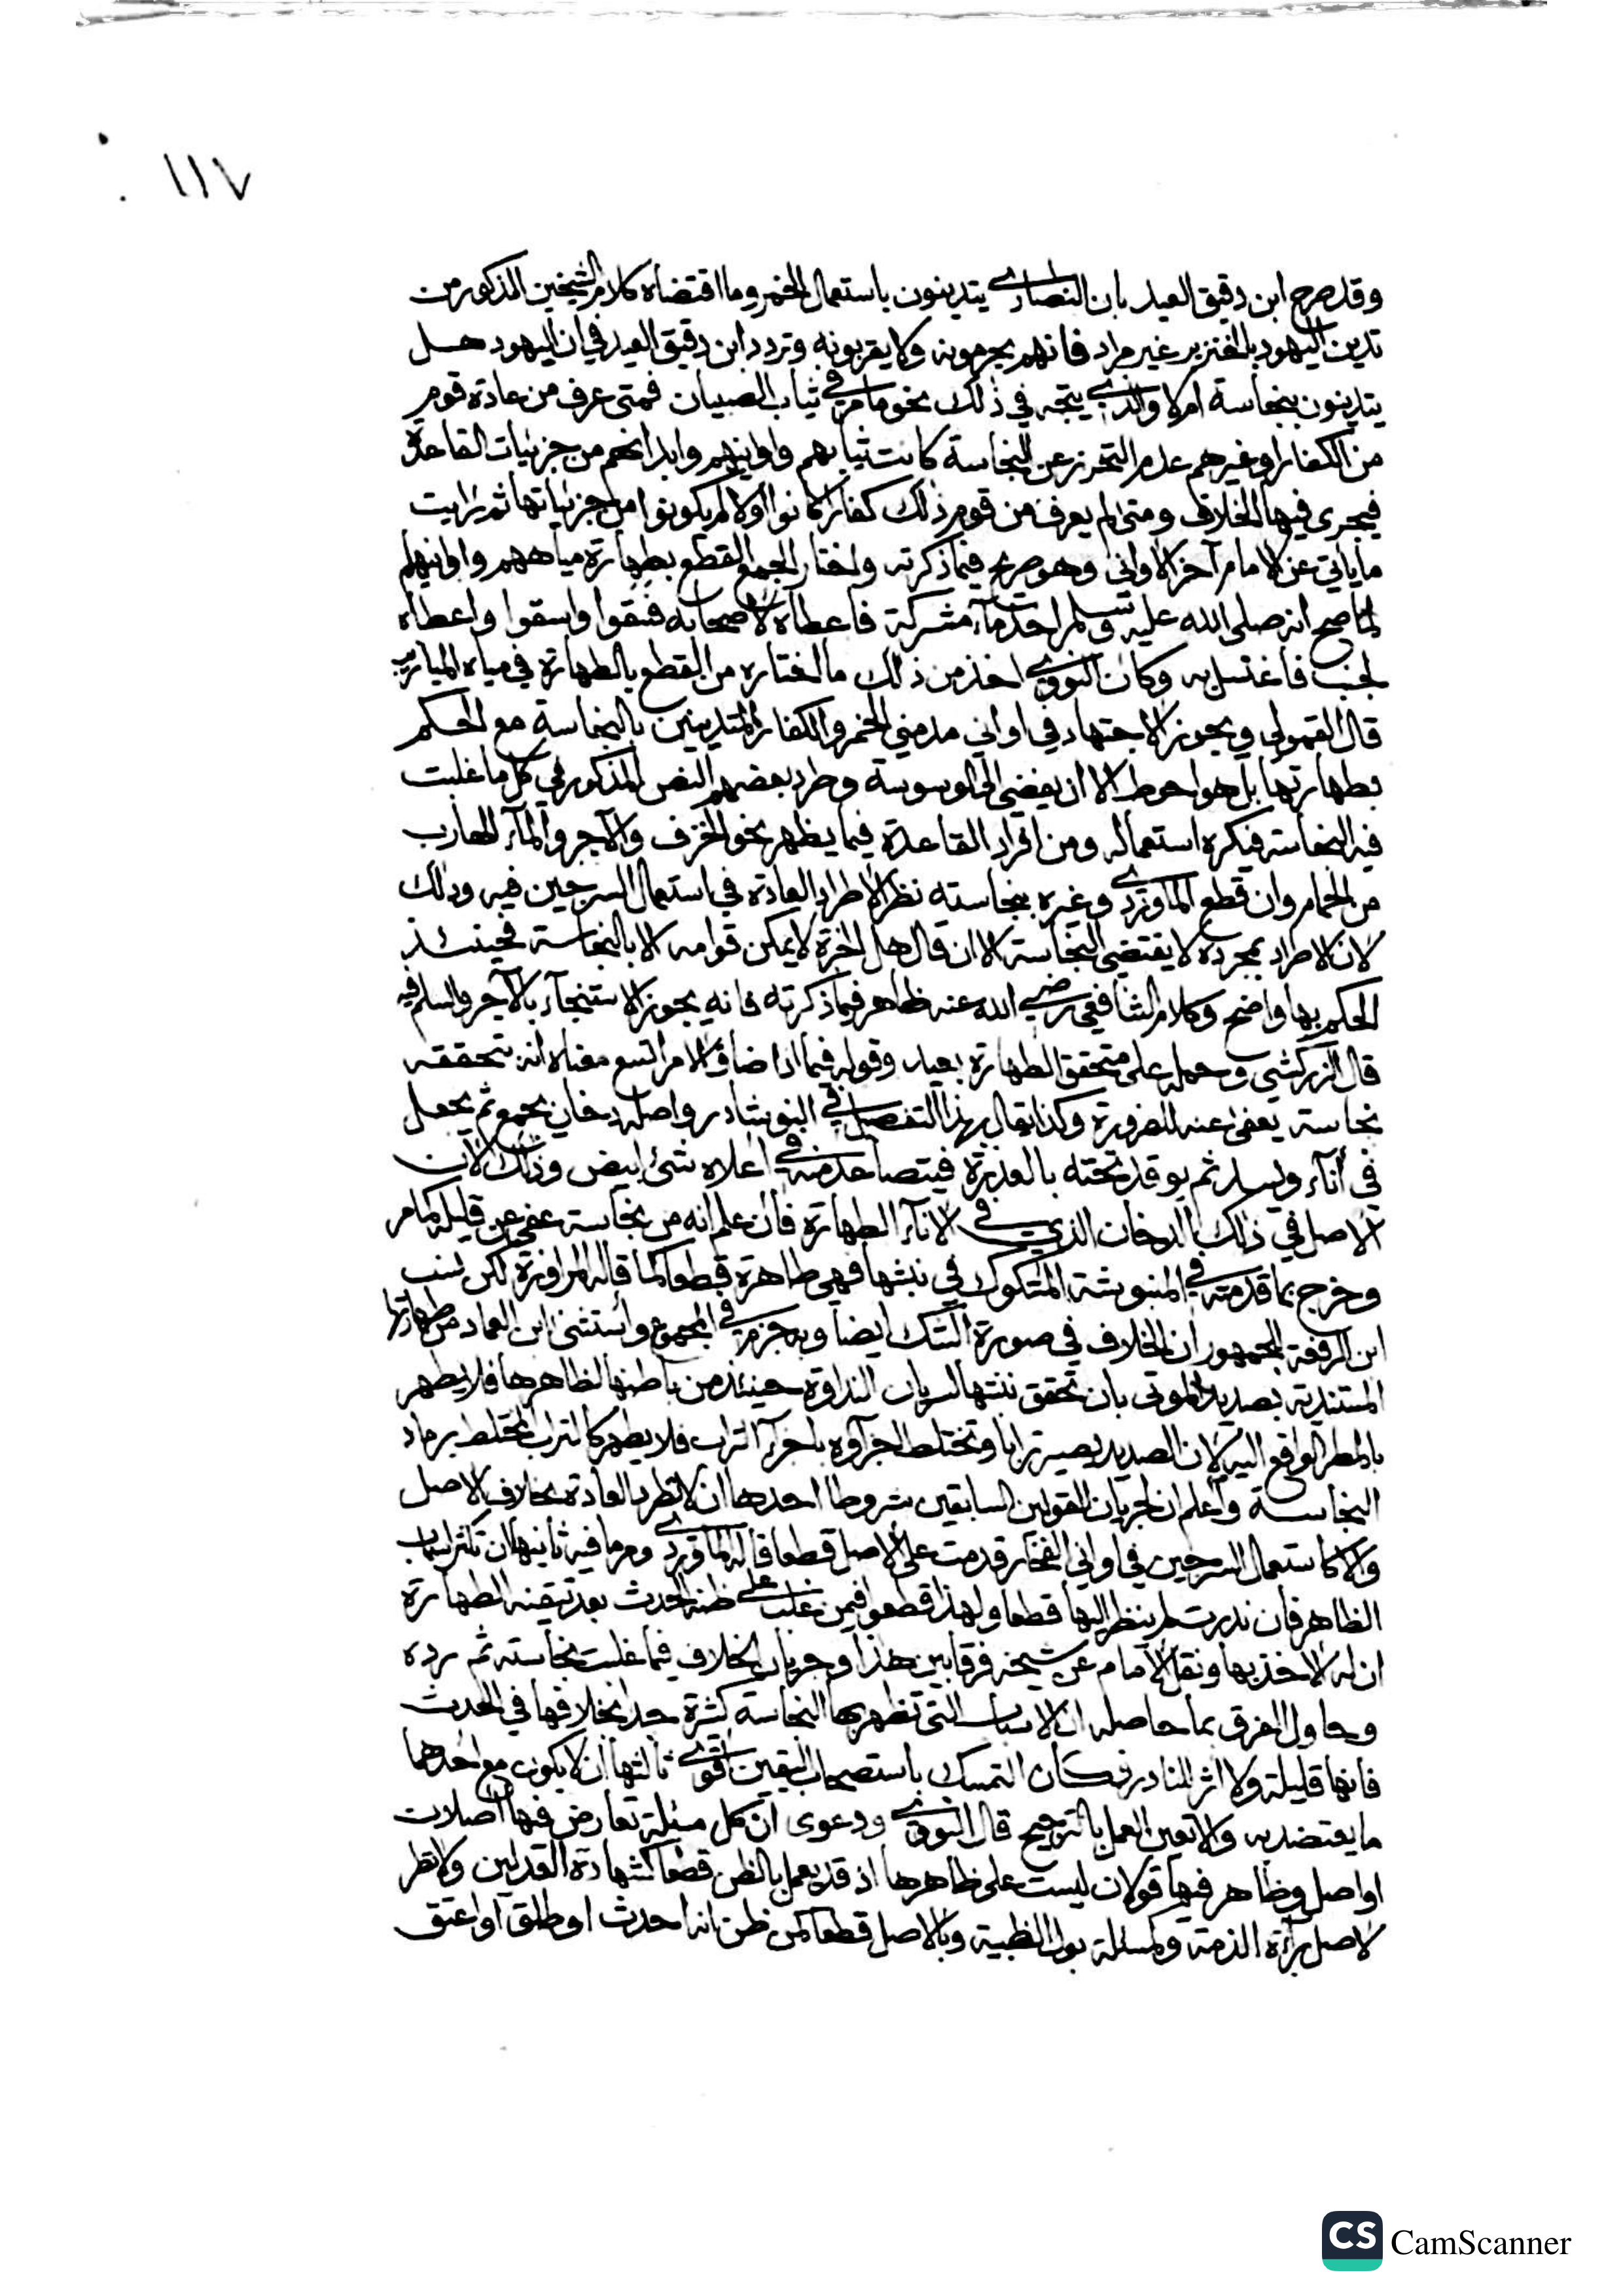 ١١٧
وقد صرح ابن دقيق العيد بان النصارى يتدينون باستعمال الخمر وما اقتضاه كلام الشيخين المذكور من
تدين اليهود بالخنزير غير مراد فانهم يحرمونه ولا يقربونه وتردد ابن دقيق العيد في ان اليهود هل
يتدينون بنجاسة ام لا والذي يتجه في ذلك نحو ما مر في ثياب الصبيان فمتى عرف من عادة قوم
من الكفار او غيرهم عدم التحرز عن النجاسة كانت ثيابهم واوانيهم وابدانهم من جزئيات القاعدة
فيجرى فيها الخلاف ومتى لم يعرف من قوم ذلك كفارا كانوا او لا لم يكونوا من جزئياتها ثم رايت
ما ياتي عن الامام آخر الاواني وهو صريح فيما ذكرته واختار الجمع القطع بطهارة مياههم واوانيهم
لما صح انه صلى الله عليه وسلم اخذ مآء مشركة فاعطاه لاصحابه فسقوا واسقوا واعطاه
لجنب فاغتسل به وكان النووي اخذ من ذلك ما اختاره من القطع بالطهارة في مياه الميازيب
قال القمولي ويجوز الاجتهاد في اواني مدمني الخمر والكفار المتدينين بالنجاسة مع الحكم
بطهارتها بل هو احوط الا ان يفضي الى الوسوسة وطرد بعضهم النص المذكور في كل ما غلبت
فيه النجاسة فيكره استعماله ومن افراد القاعدة فيما يظهر نحو الخزف والآجر والمآء الهارب
من الحمام وان قطع الماوردي وغيره بنجاسته نظرا لاطراد العادة في استعمال السرجين فيه وذلك
لان الاطراد بمجرده لا يقتضي النجاسة الا ان قال اهل الخبرة لا يمكن قوامه الا بالنجاسة فحينئذ
الحكم بها واضح وكلام الشافعي رضي الله عنه ظاهر فيما ذكرته فانه يجوز الاستنجآء بالآجر والسلم فيه
قال الزركشي وحمله على متحقق الطهارة بعيد وقوله فيما اذا ضاق الامر اتسع معناه انه تحققه
نجاسة يعفى عنه للضرورة وكذا يقال بهذا التفصيل في النوشادر واصله دخان يجمع ثم يجعل
في أنآء ويسد ثم يوقد تحته بالعذرة فيتصاعد منه في اعلاه شئ ابيض وذلك لان
الاصل في ذلك الدخان الذي في الانآء الطهارة فان علم انه من نجاسة عفي عن قليله كما مر
وخرج بما قدمته في المنبوشة المشكوك في نبشها فهي طاهرة قطعا كما قاله المراوزة لكن نسب
ابن الرفعة للجمهور ان الخلاف في صورة الشك ايضا وبه جزم في المجموع واستثنى ابن العماد من طهارتها
المستندية بصديد الموتى بان تحقق نتنها لسريان النداوة حينئذ من باطنها لظاهرها فلا يطهر
بالمطر الواقع اليه لان الصديد يصير ترابا وتختلط اجزآؤه باجزآء التراب فلا يطهر كالتراب المختلط برماد
النجاسة واعلم ان لجريان القولين السابقين شروطا احدها ان لا تطرد العادة بخلاف الاصل
والا كاستعمال السرجين في اواني الفخار قدمت على الاصل قطعا قاله الماوردي ومر ما فيه ثانيها ان تكثر اسباب
الظاهر فان ندرت لم ينظر اليها قطعا ولهذا قطعوا فيمن غلب على ظنه الحدث بعد تيقنه الطهارة
ان له الاخذ بها ونقل الامام عن شيخه فرقا بين هذا وجريان الخلاف فيما غلبت نجاسته ثم رده
وحاول الفرق بما حاصله ان الاسباب التي تظهر بها النجاسة كثيرة جدا بخلافها في الحدث
فانها قليلة ولا اثر للنادر فكان التمسك باستصحاب اليقين اقوى ثالثها ان لا يكون مع احدهما
ما يعتضد به والا تعين العمل بالترجيح قال النووي ودعوى ان كل مسئلة تعارض فيها اصلان
او اصل وظاهر فيها قولان ليست على ظاهرها اذ قد يعمل بالظن قطعا كشهادة العدلين ولا نظر
لاصل برآءة الذمة وكمسئلة بول الظبية وبالاصل قطعا كمن ظن انه احدث او طلق او اعتق
CS CamScanner